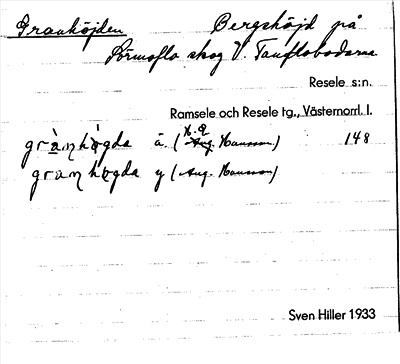 Granhöjden Bergshöjd på
Sörmoflo skog V. Tanflobodarna
Resele s:n.
Ramsele och Resele tg., Västernorrl. l.
gràn̥hø̀gda ä. (K.A. Hansson) 148
granhøgda y (Aug. Hansson)
Sven Hiller 1933